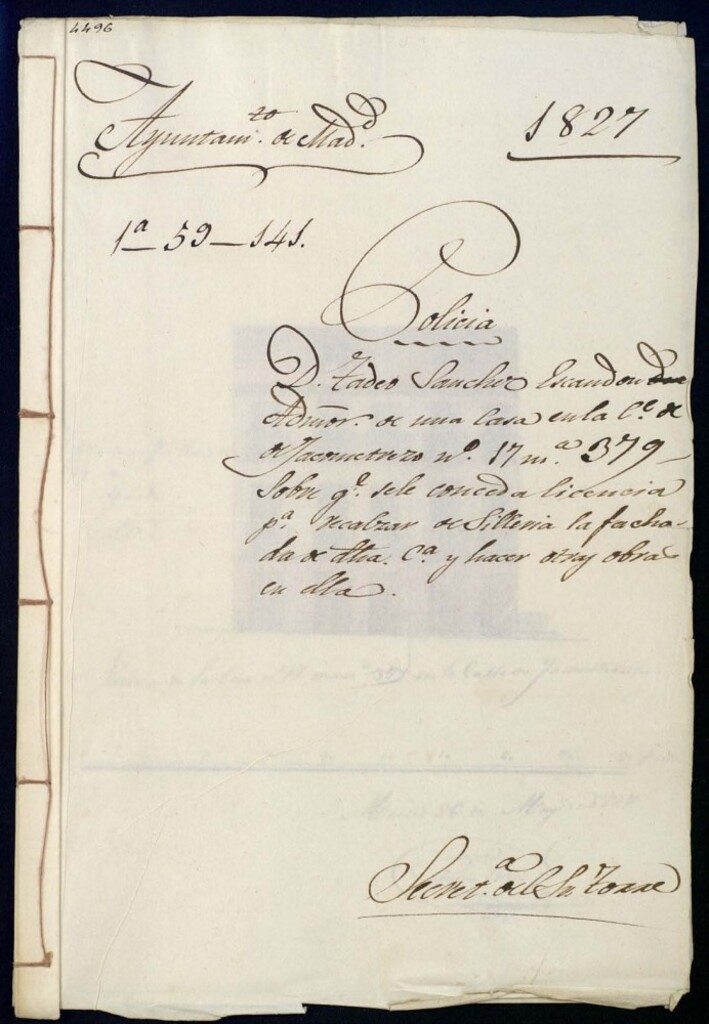 4496
Ayuntam.to de Mad.d
1827
1a 59-141.
Policia
D. Tadeo Sanchez Escandon
Admor. de una Casa en la C.e de
de Jacometrezo n.o 17 m.a 379
Sobre q.e se le conceda licencia
p.a recalzar de Silleria la facha-
da de dha. C.a y hacer otras obras
en ella.
Secret.a del Sr Torre